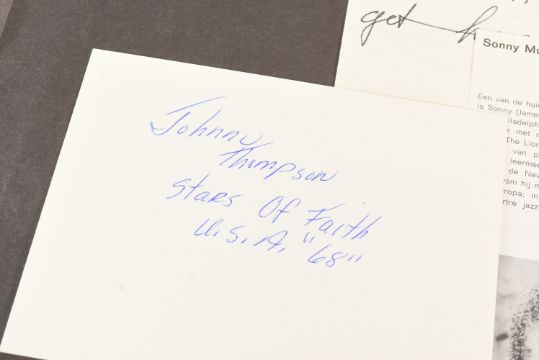 get h
Sonny Mu
Een van de hui
is Sonny (Jame
iladelph
met n
The Lion
van p
leermees
de New
vam hij n
ropa; in
rtre jazz
Johnny
Thompson
Stars Of Faith
U.S.A. "68"